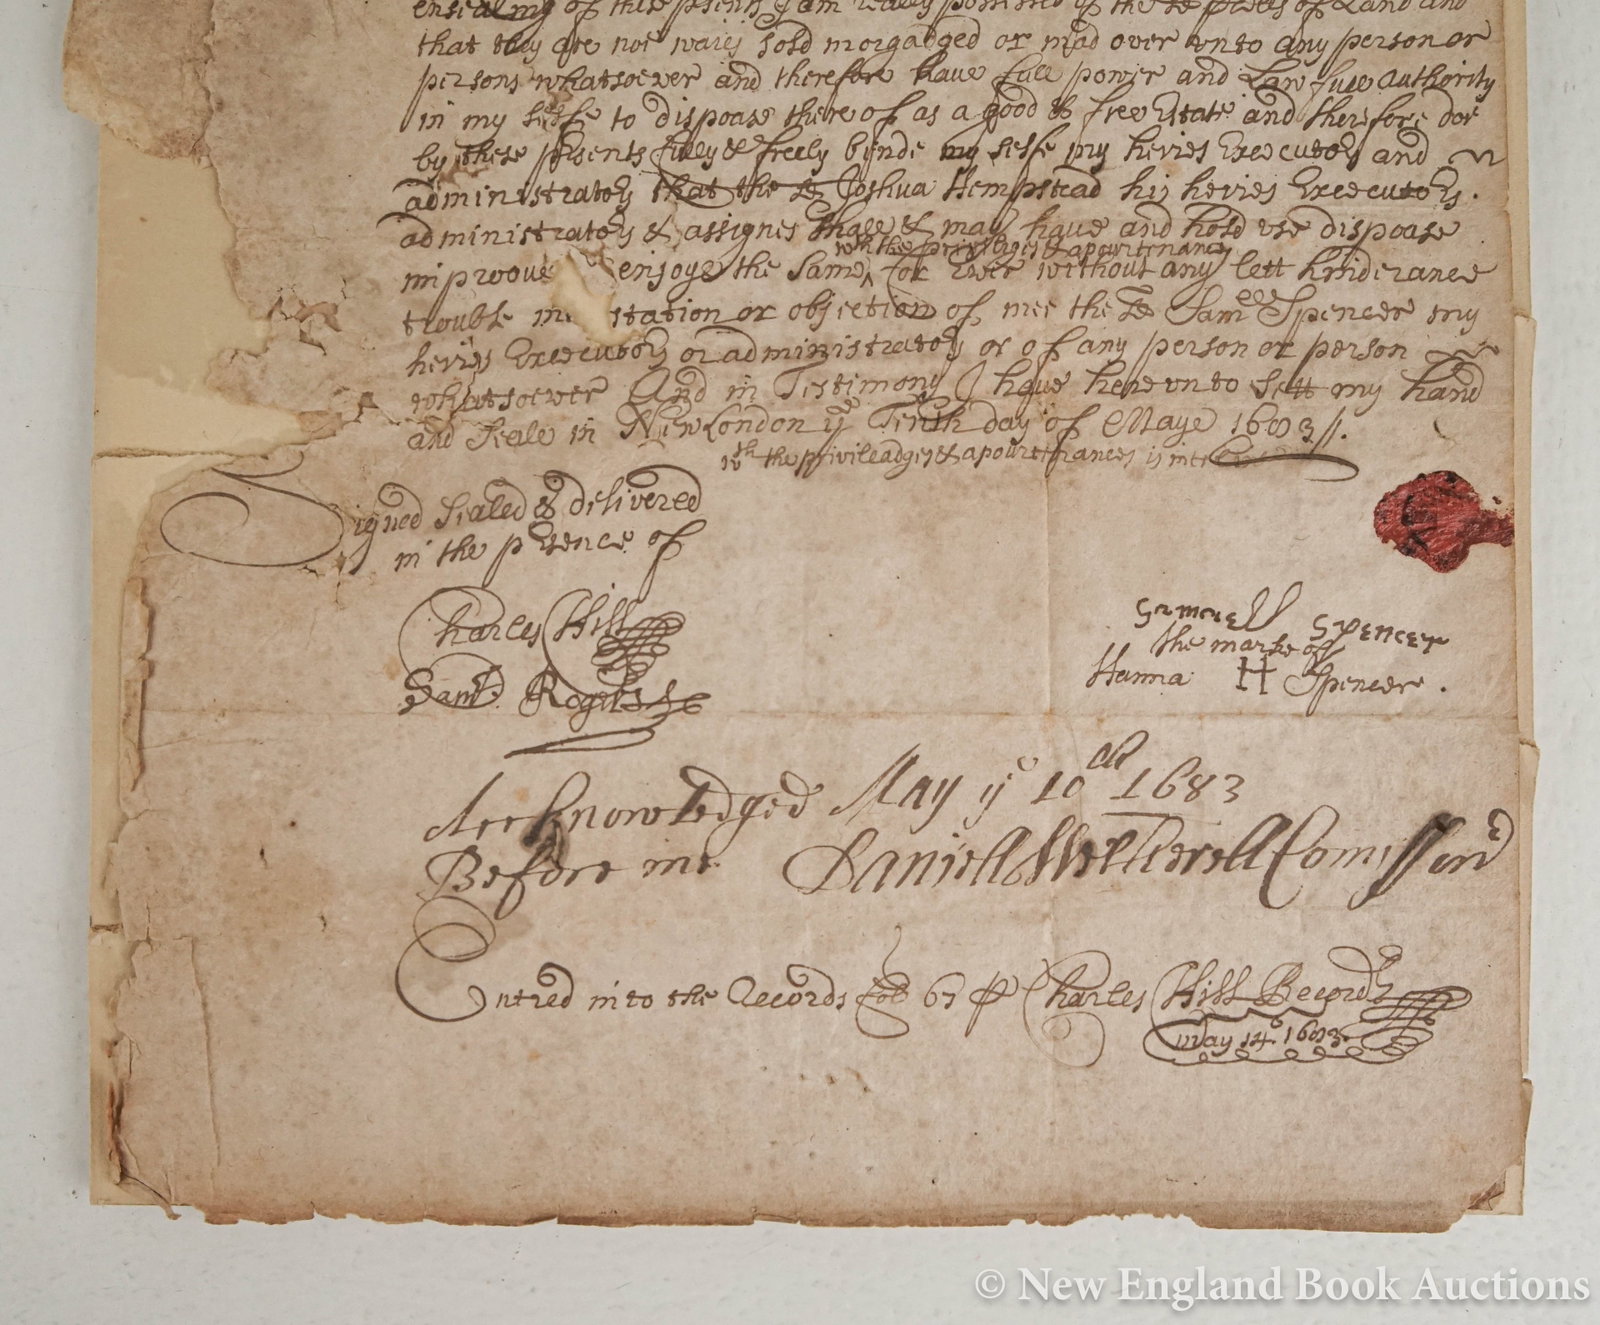 ensealing of these psents I am really possessed of the sd pcells of Land and
that they are not waies sold morgadged or mad over vnto any person or
persons whatsoever and therefore have full power and Lawfull authority
in my selfe to dispoase thereof as a good & free Estate and therefore doe
by these psents fully & freely bynde my selfe my heries Executors and
administrators that the sd Joshua Hempstead his heries Executors.
administrators & assignes shall & may have and hold vse dispoase
with the privileges & apourtenances
improoue enjoye the same for Ever without any lett hinderance
trouble mo station or objection of mee the sd Samll Spencer my
heries Executors or administrators or of any person or person
whatsoever And in Testimony I have herevnto sett my hand
and seale in New London ye Tenth day of Maye 1683 //.
wth the privileadges & apourtenances is inter
Signed sealed & delivered
in the psence of
Charles Hill
Samll Rogers
Samuell Spencer
the marke of
Hanna H Spencer.
Acknowledged May ye 10th 1683
Before me Daniell Wetherell Comissionr
Entred into the Records fol 67 p Charles Hill Recordr
may 14. 1683
© New England Book Auctions